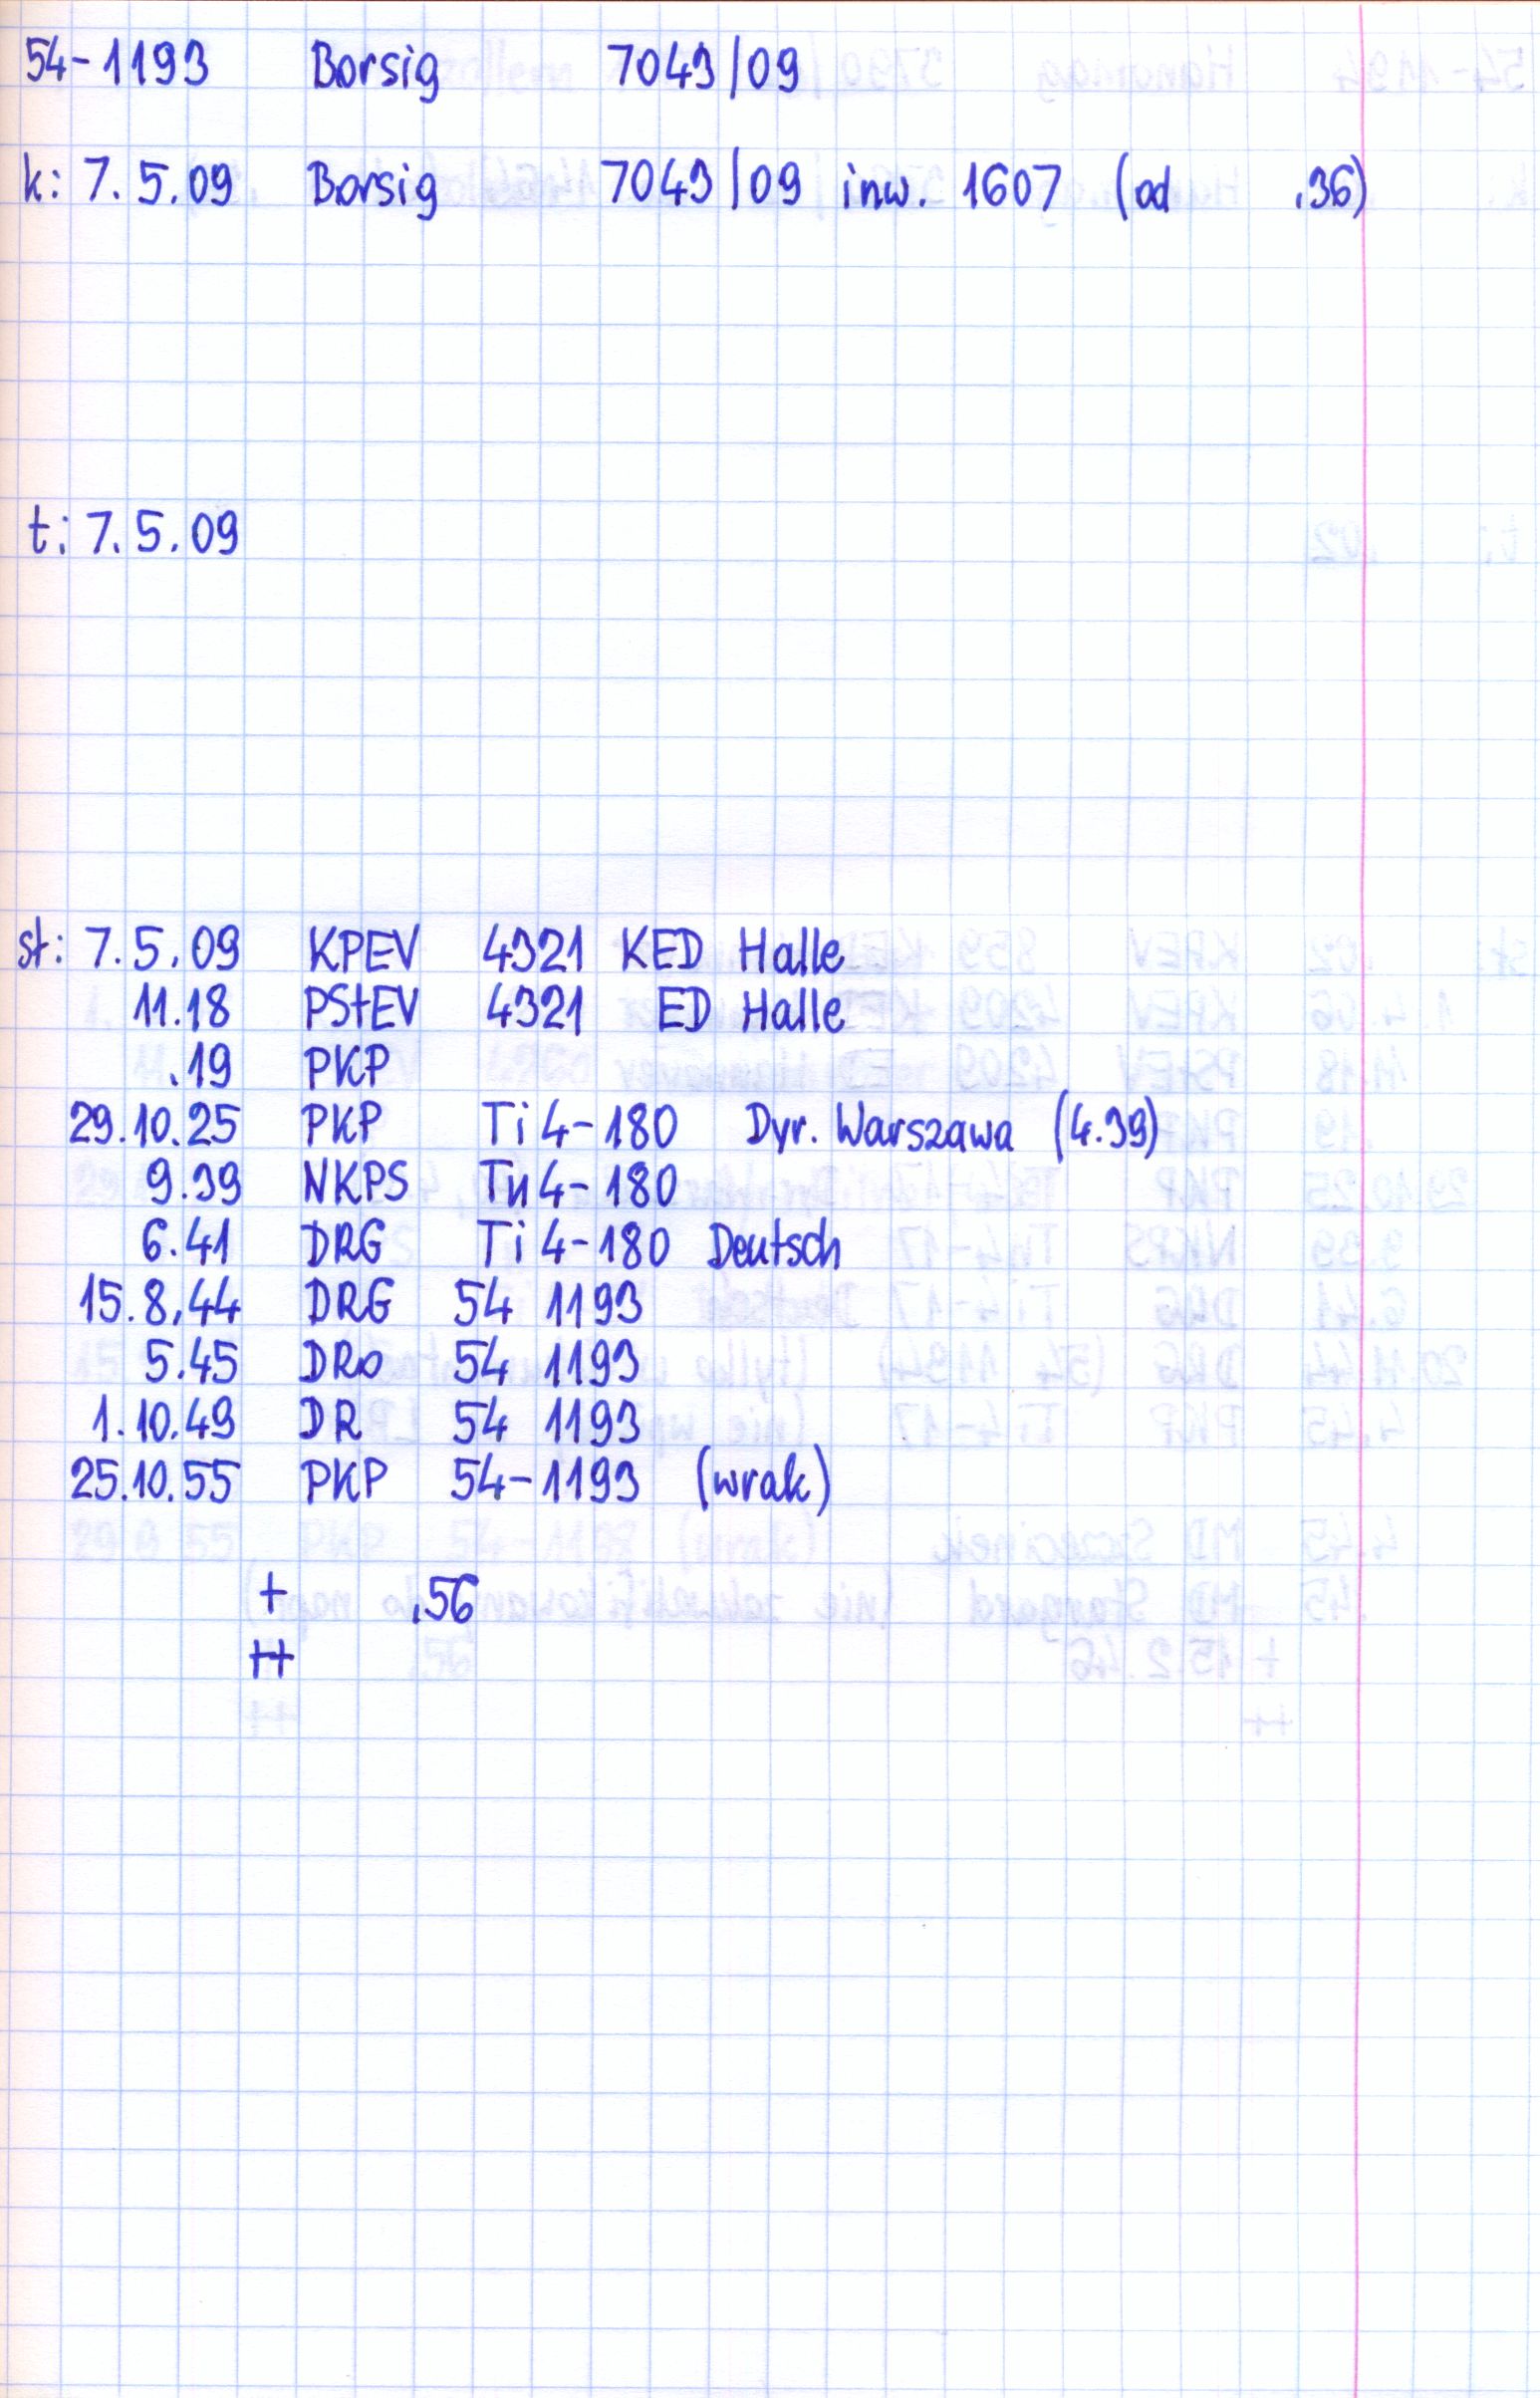 54-1193 Borsig 7043/09
k: 7.5.09 Borsig 7043/09 inw. 1607 (od .36)
t: 7.5.09
st: 7.5.09 KPEV 4321 KED Halle
11.18 PStEV 4321 ED Halle
.19 PKP
29.10.25 PKP Ti4-180 Dyr. Warszawa (4.39)
9.39 NKPS Tи4-180
6.41 DRG Ti4-180 Deutsch
15.8.44 DRG 54 1193
5.45 DRo 54 1193
1.10.49 DR 54 1193
25.10.55 PKP 54-1193 (wrak)
+ .56
++